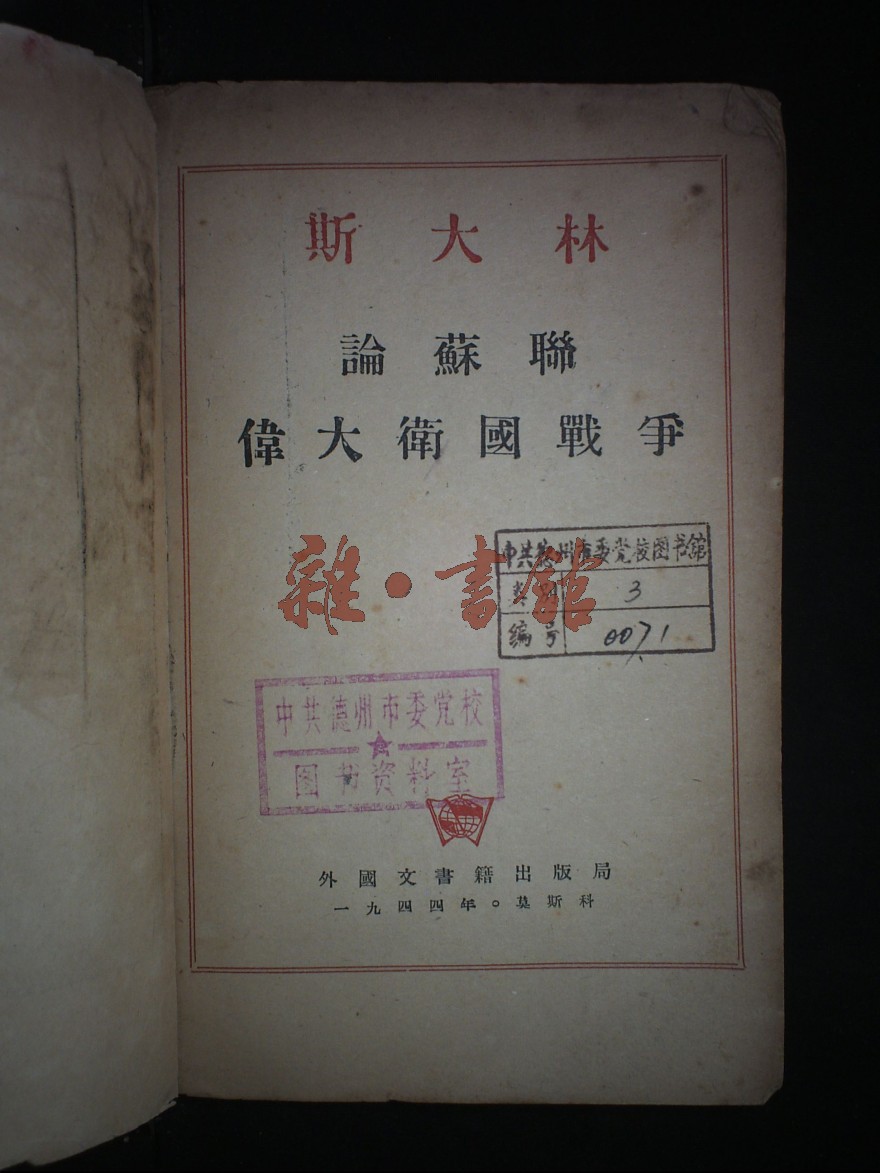 斯大林
論蘇聯
偉大衛國戰爭
雜·書館
中共德州市委党校图书舘
类别 3
编号 0071
中共德州市委党校
图书资料室
外國文書籍出版局
一九四四年。莫斯科